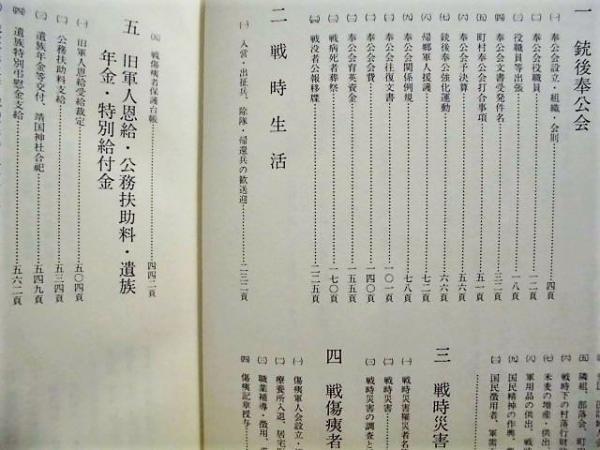 一 銃後奉公会
㈠ 奉公会設立・組織・会則……四頁
㈡ 奉公会役職員……一二頁
㈢ 役職員等出張……一八頁
㈣ 奉公会文書受発件名……三二頁
㈤ 町村奉公会打合事項……五一頁
㈥ 奉公会予決算……五六頁
㈦ 銃後奉公強化運動……六六頁
㈧ 帰郷軍人援護……七二頁
㈨ 奉公会関係例規……七八頁
㈩ 奉公会往復文書……一〇一頁
奉公会会費……一四〇頁
奉公会育英資金……一五五頁
戦病死者葬祭……一七〇頁
戦没者公報移牒……二二五頁
二 戦時生活
㈠ 入営・出征兵、除隊・帰還兵の歓送迎……二三二頁
㈤ 隣組、部落会、町
㈥ 戦時下の村落行財
㈦ 米麦の増産・供出、
㈧ 軍用品の供出、戦
㈨ 国民精神の作興、
㈩ 国民徴用者、軍需
三 戦時災害
㈠ 戦時災害罹災者名
㈡ 戦時災害
㈢ 戦時災害の調査と
四 戦傷痍者
㈠ 傷痍軍人会設立・
㈡ 療養所入退、居宅
㈢ 職業補導・徴用、
㈣ 傷痍記章授与
㈤ 戦傷痍者保護台帳……四四二頁
五 旧軍人恩給・公務扶助料・遺族
年金・特別給付金
㈠ 旧軍人恩給受給裁定……五〇四頁
㈡ 公務扶助料支給……五三四頁
㈢ 遺族年金等交付、靖国神社合祀……五四九頁
㈣ 遺族特別弔慰金支給……五六二頁